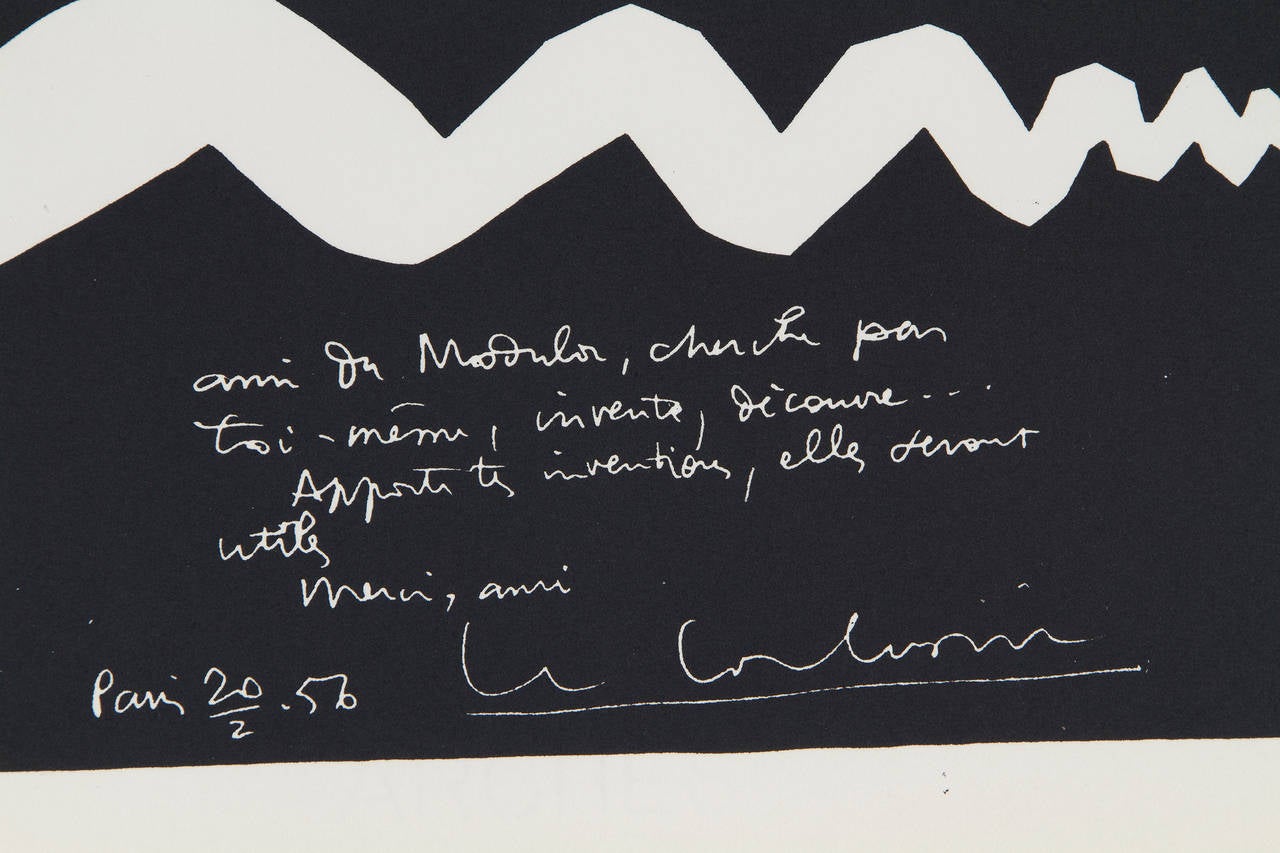 ami du Modulor, cherche par
toi-même, invente, découvre...
Apporte tes inventions, elles seront
utiles
Merci, ami
Le Corbusier
Paris 20/2 .56